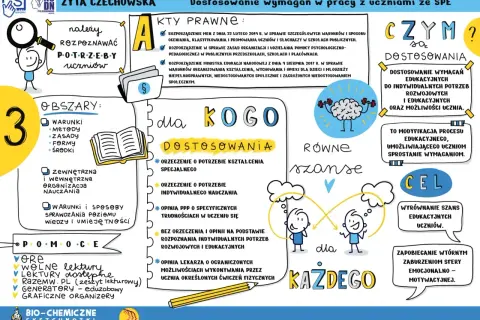 ZYTA CZECHOWSKA
Dostosowanie wymagań w pracy z uczniami ze SPE
należy
ROZPOZNAWAĆ
POTRZEBY
uczniów
AKTY PRAWNE:
ROZPORZĄDZENIE MEN Z DNIA 22 LUTEGO 2019 R. W SPRAWIE SZCZEGÓŁOWYCH WARUNKÓW I SPOSOBU
OCENIANIA, KLASYFIKOWANIA I PROMOWANIA UCZNIÓW I SŁUCHACZY W SZKOŁACH PUBLICZNYCH.
ROZPORZĄDZENIE W SPRAWIE ZASAD ORGANIZACJI I UDZIELANIA POMOCY PSYCHOLOGICZNO-
PEDAGOGICZNEJ W PUBLICZNYCH PRZEDSZKOLACH, SZKOŁACH I PLACÓWKACH.
ROZPORZĄDZENIE MINISTRA EDUKACJI NARODOWEJ Z DNIA 9 SIERPNIA 2017 R. W SPRAWIE
WARUNKÓW ORGANIZOWANIA KSZTAŁCENIA, WYCHOWANIA I OPIEKI DLA DZIECI I MŁODZIEŻY
NIEPEŁNOSPRAWNYCH, NIEDOSTOSOWANYCH SPOŁECZNIE I ZAGROŻONYCH NIEDOSTOSOWANIEM
SPOŁECZNYM.
CZYM ?
są
DOSTOSOWANIA
DOSTOSOWANIE WYMAGAŃ
EDUKACYJNYCH
DO INDYWIDUALNYCH POTRZEB
ROZWOJOWYCH
I EDUKACYJNYCH
ORAZ MOŻLIWOŚCI UCZNIA.
TO MODYFIKACJA PROCESU
EDUKACYJNEGO,
UMOŻLIWIAJĄCEGO UCZNIOM
SPROSTANIE WYMAGANIOM.
3
OBSZARY:
WARUNKI
- METODY
- ZASADY
- FORMY
- ŚRODKI
ZEWNĘTRZNA
I WEWNĘTRZNA
ORGANIZACJA
NAUCZANIA
WARUNKI I SPOSOBY
SPRAWDZANIA POZIOMU
WIEDZY I UMIEJĘTNOŚCI
§
dla KOGO
DOSTOSOWANIA
ORZECZENIE O POTRZEBIE KSZTAŁCENIA
SPECJALNEGO
ORZECZENIE O POTRZEBIE
INDYWIDUALNEGO NAUCZANIA
OPINIA PPP O SPECYFICZNYCH
TRUDNOŚCIACH W UCZENIU SIĘ
BEZ ORZECZENIA I OPINII NA PODSTAWIE
ROZPOZNANIA INDYWIDUALNYCH POTRZEB
ROZWOJOWYCH I EDUKACYJNYCH
OPINIA LEKARZA O OGRANICZONYCH
MOŻLIWOŚCIACH WYKONYWANIA PRZEZ
UCZNIA OKREŚLONYCH ĆWICZEŃ FIZYCZNYCH
RÓWNE
szanse
dla
KAŻDEGO
CEL
WYRÓWNANIE SZANS
EDUKACYJNYCH
UCZNIÓW.
ZAPOBIEGANIE WTÓRNYM
ZABURZENIOM SFERY
EMOCJONALNO -
MOTYWACYJNEJ.
POMOCE
ORE
WOLNE lektury
LEKTURY dostępne
RAZEMW.PL (zeszyt lekturowy)
GENERATORY - eduzabawy
GRAFICZNE ORGANIZERY
BIO-CHEMICZNE